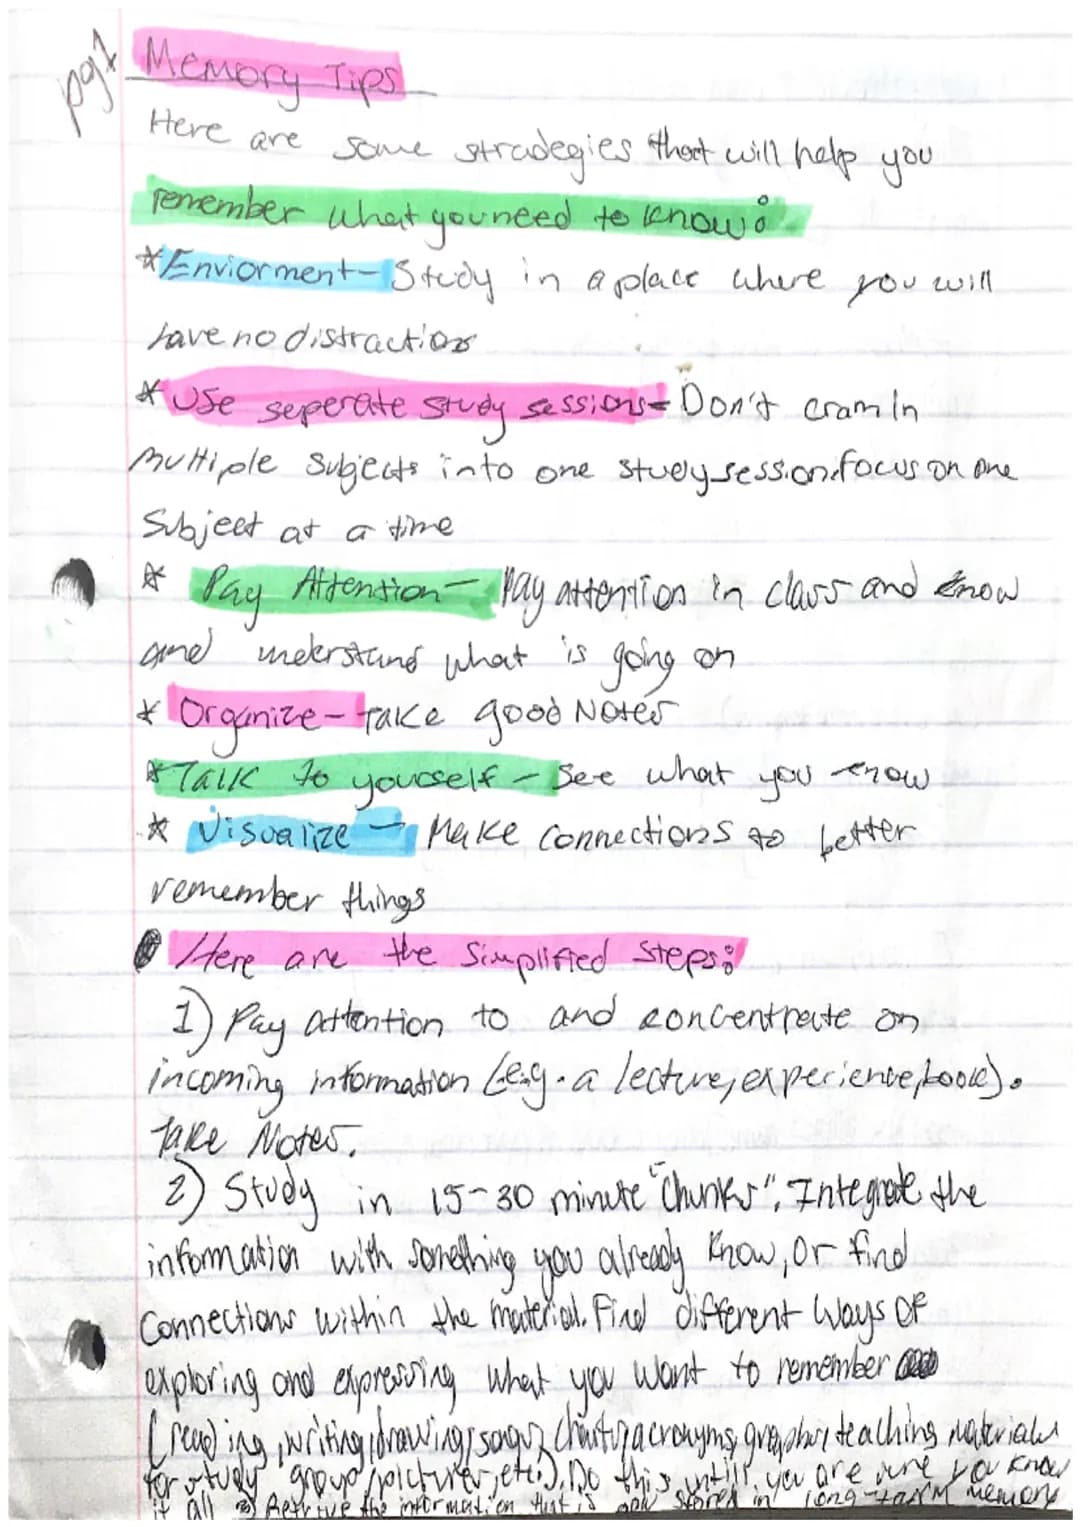 pg1
Memory Tips
Here are some stradegies that will help you
remember what you need to know:
*Enviorment- Study in a place where you will
have no distractions
* Use seperate study sessions- Don't cram in
multiple subjects into one study session. focus on one
Subject at a time
* Pay Attention- Pay attention in class and know
and understand what is going on
* Organize- Take good Notes
*Talk to yourself - See what you know
* Visualize - Make connections to better
remember things
Here are the Simplified Steps:
1) Pay attention to and concentrate on
incoming information (e.g. a lecture, experience, book).
Take Notes.
2) Study in 15-30 minute "Chunks". Integrate the
information with something you already know, or find
Connections within the material. Find different ways of
exploring and expressing what you want to remember
(reading, writing, drawing, songs, charts, acronyms, graphs, teaching materials
for study group, pictures, etc.). Do this untill you are sure you know
it all 3) Retrive the information that is now stored in long-term memory